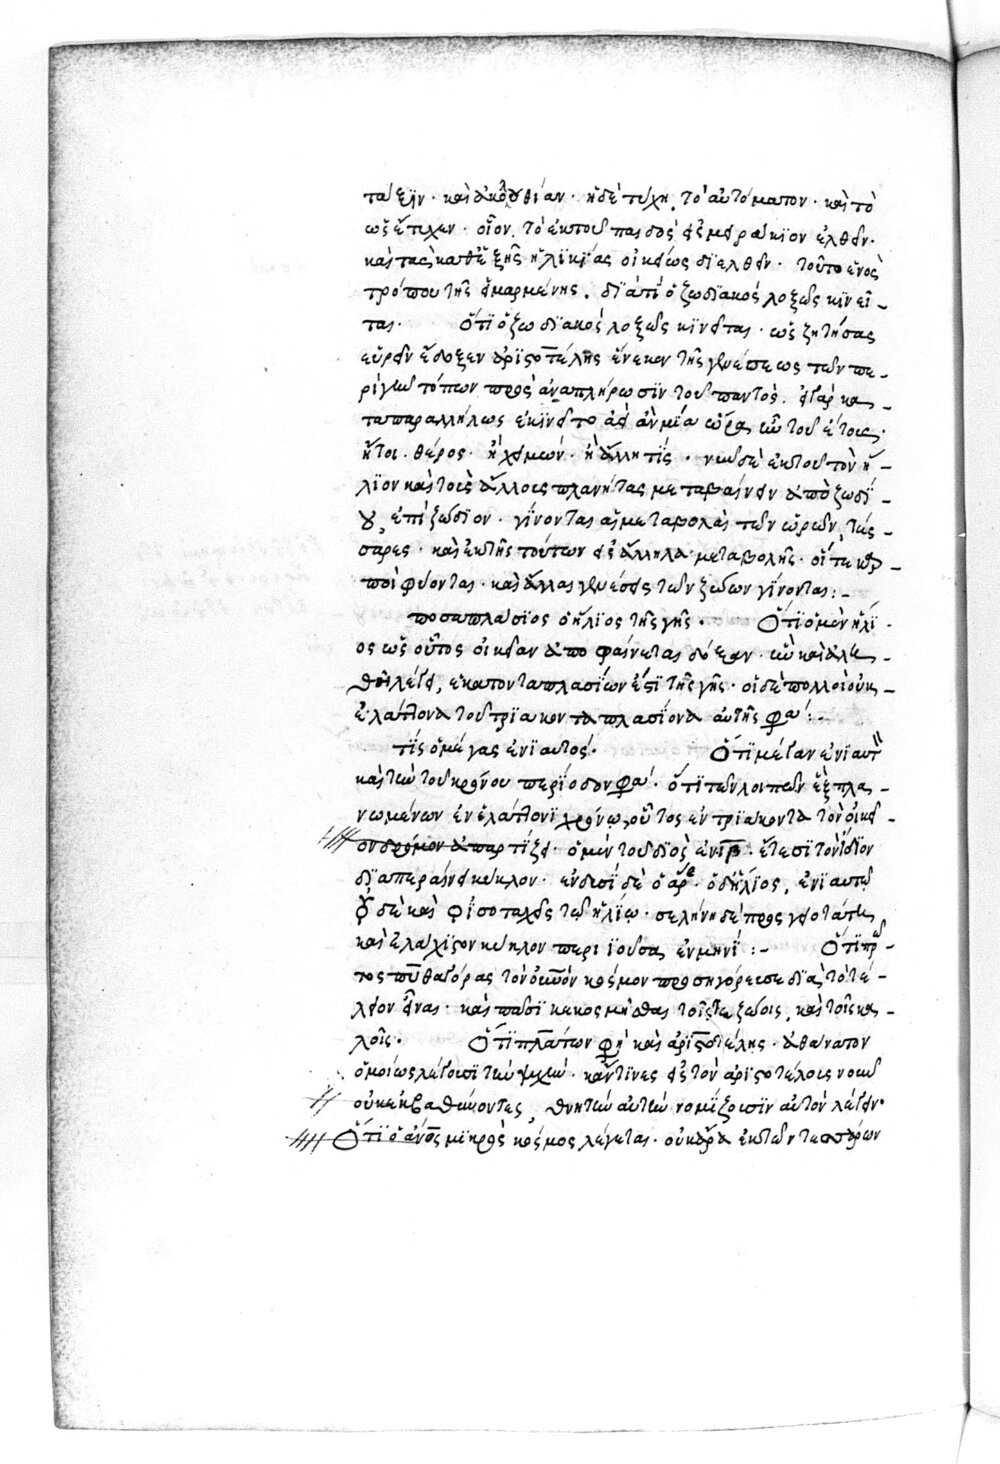 τάξιν· καὶ ἀκολουθίαν· ἡ δὲ τύχη, τὸ αὐτόματον· καὶ τὸ
ὡς ἔτυχεν· οἷον, τὸ ἐκ τοῦ παιδὸς εἰς μειράκιον ἐλθεῖν·
καὶ τὰς καθεξῆς ἡλικίας οἰκείως διελθεῖν· τοῦτο ἑνὸς
τρόπου τῆς εἱμαρμένης. διατί ὁ ζωδιακὸς λοξῶς κινεῖ-
ται· Ὅτι ὁ ζωδιακὸς λοξῶς κινεῖται· ὡς ζητήσας
εὑρεῖν ἔδοξεν ἀριστοτέλης ἕνεκεν τῆς γενέσεως τῶν πε-
ριγείων τόπων πρὸς ἀναπλήρωσιν τοῦ παντός. εἰ γὰρ κα-
τὰ παραλλήλως ἐκινεῖτο ἀεὶ ἂν μία ὥρα ἦν τοῦ ἔτους·
ἤτοι θέρος· ἢ χειμών· ἢ ἄλλη τίς· νῦν δὲ ἐκ τοῦ τὸν ἥ-
λιον καὶ τοὺς ἄλλους πλανήτας μεταβαίνειν ἀπὸ ζωδί-
ου, ἐπὶ ζώδιον· γίνονται αἱ μεταβολαὶ τῶν ὡρῶν, τέσ-
σαρες· καὶ ἐκ τῆς τούτων εἰς ἄλληλα μεταβολῆς· οἵ τε καρ-
ποὶ φύονται· καὶ ἄλλαι γενέσεις τῶν ζώων γίνονται:-
ποσαπλάσιος ὁ ἥλιος τῆς γῆς· Ὅτι ὁ μὲν ἥλι-
ος ὡς οὗτος οἰκείαν ἀποφαίνεται δόξαν·
λέγει, ἑκατονταπλασίων ἐστὶ τῆς γῆς· οἱ δὲ πολλοὶ οὐκ
ἐλάττονα τοῦ τριακονταπλασίονα αὐτῆς φασί:.
τίς ὁ μέγας ἐνιαυτός· Ὅτι μέγαν ἐνιαυτὸν
καὶ τὴν τοῦ κρόνου περίοδον φασί· ὅτι τῶν λοιπῶν ἓξ πλα-
νωμένων ἐν ἐλάττονι χρόνῳ, οὗτος ἐν τριάκοντα τὸν οἰκεῖ-
ον δρόμον ἀπαρτίζει· ὁ μὲν τοῦ διὸς ἐν ιβ· ἔτεσι τὸν ἴδιον
διαπεραίνει κύκλον· ἐν δυσὶ δὲ ὁ ἄρης· ὁ δ' ἥλιος, ἐνιαυτῷ
☿ δὲ καὶ ♀ ἰσοταχεῖς τῷ ἡλίῳ· σελήνη δὲ προσγειοτάτη
καὶ ἐλάχιστον κύκλον περιϊοῦσα, ἐν μηνί:- Ὅτι πρῶ-
τος πυθαγόρας τὸν οὐρανὸν κόσμον προσηγόρευσε διὰ τὸ τέ-
λειον εἶναι· καὶ πᾶσι κεκοσμῆσθαι τοῖς τε ζώοις, καὶ τοῖς κα-
λοῖς· Ὅτι πλάτων φησὶ καὶ ἀριστοτέλης· ἀθάνατον
ὁμοίως λέγουσι τὴν ψυχήν· κἄν τινες εἰς τὸν ἀριστοτέλους νοῦν
οὐκ ἐμβαθύνοντες, θνητὴν αὐτὴν νομίζουσιν αὐτὸν λέγειν·
Ὅτι ὁ ἄνος μικρὸς κόσμος λέγεται· οὐκ ἄρα ἐκ τῶν τεσσάρων